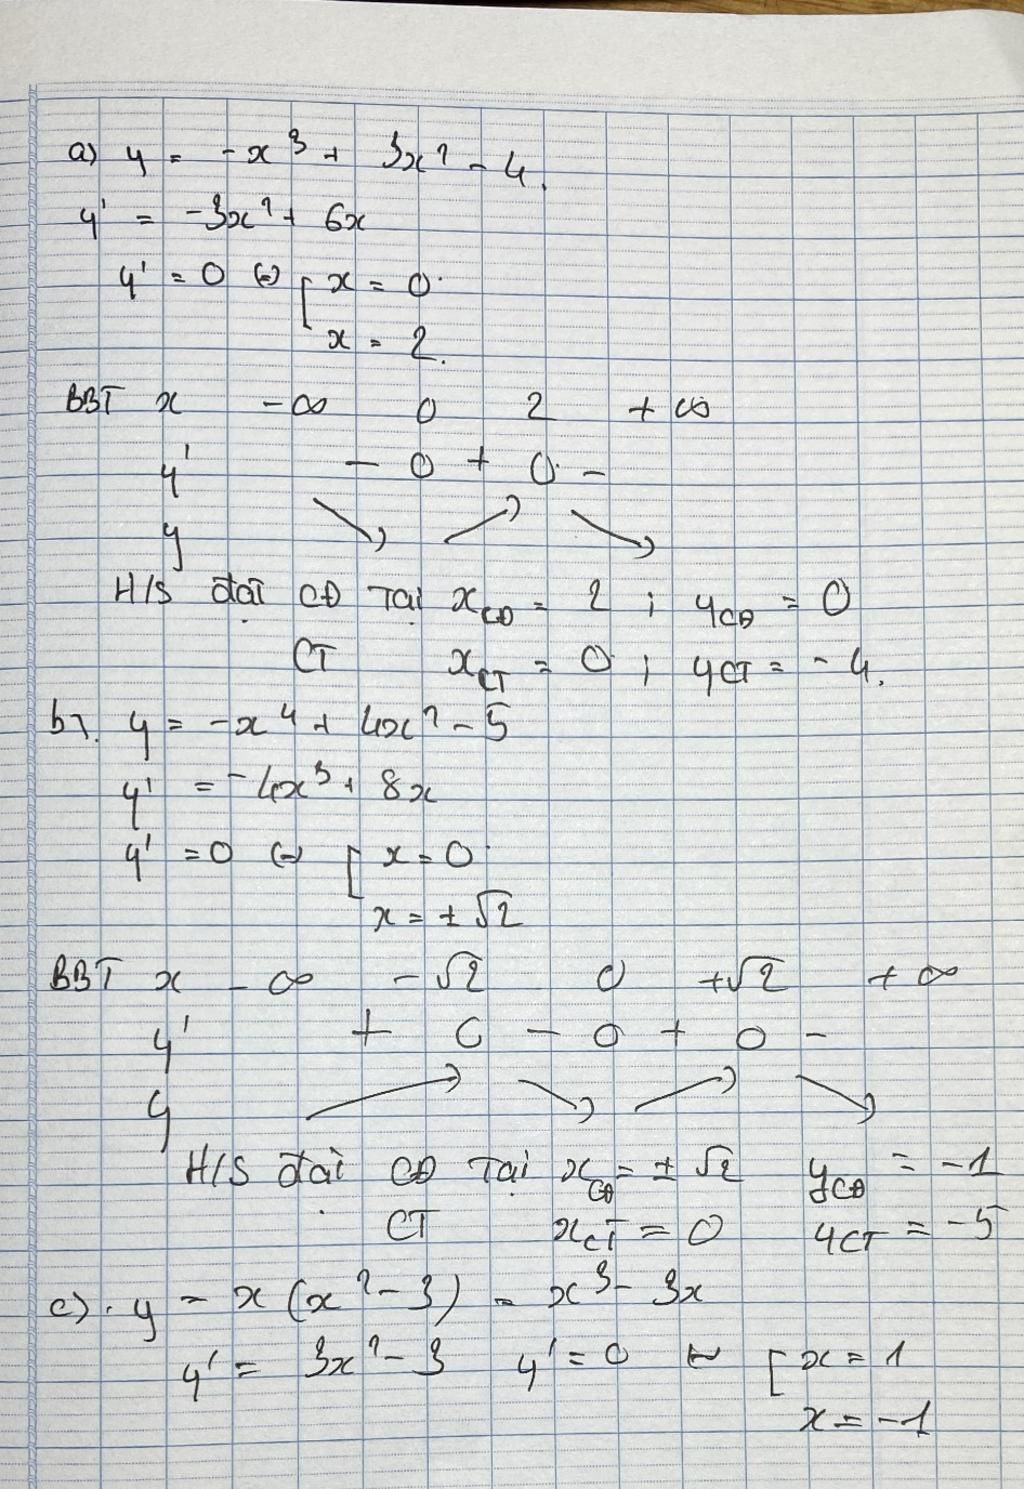 a) y = -x³ + 3x² - 4.
y' = -3x² + 6x
y' = 0 (=) [ x = 0
x = 2.
BBT x -∞ 0 2 +∞
y' - 0 + 0 -
y ↘ ↗ ↘
H/S đại CĐ Tại x_CĐ = 2 ; y_CĐ = 0
CT x_CT = 0 ; y_CT = -4.
b). y = -x⁴ + 4x² - 5
y' = -4x³ + 8x
y' = 0 (=) [ x = 0
x = ±√2
BBT x -∞ -√2 0 +√2 +∞
y' + 0 - 0 + 0 -
y ↗ ↘ ↗ ↘
H/S đại CĐ Tại x_CĐ = ±√2 y_CĐ = -1
CT x_CT = 0 y_CT = -5
c). y = x(x² - 3) = x³ - 3x
y' = 3x² - 3 y' = 0 (=) [ x = 1
x = -1